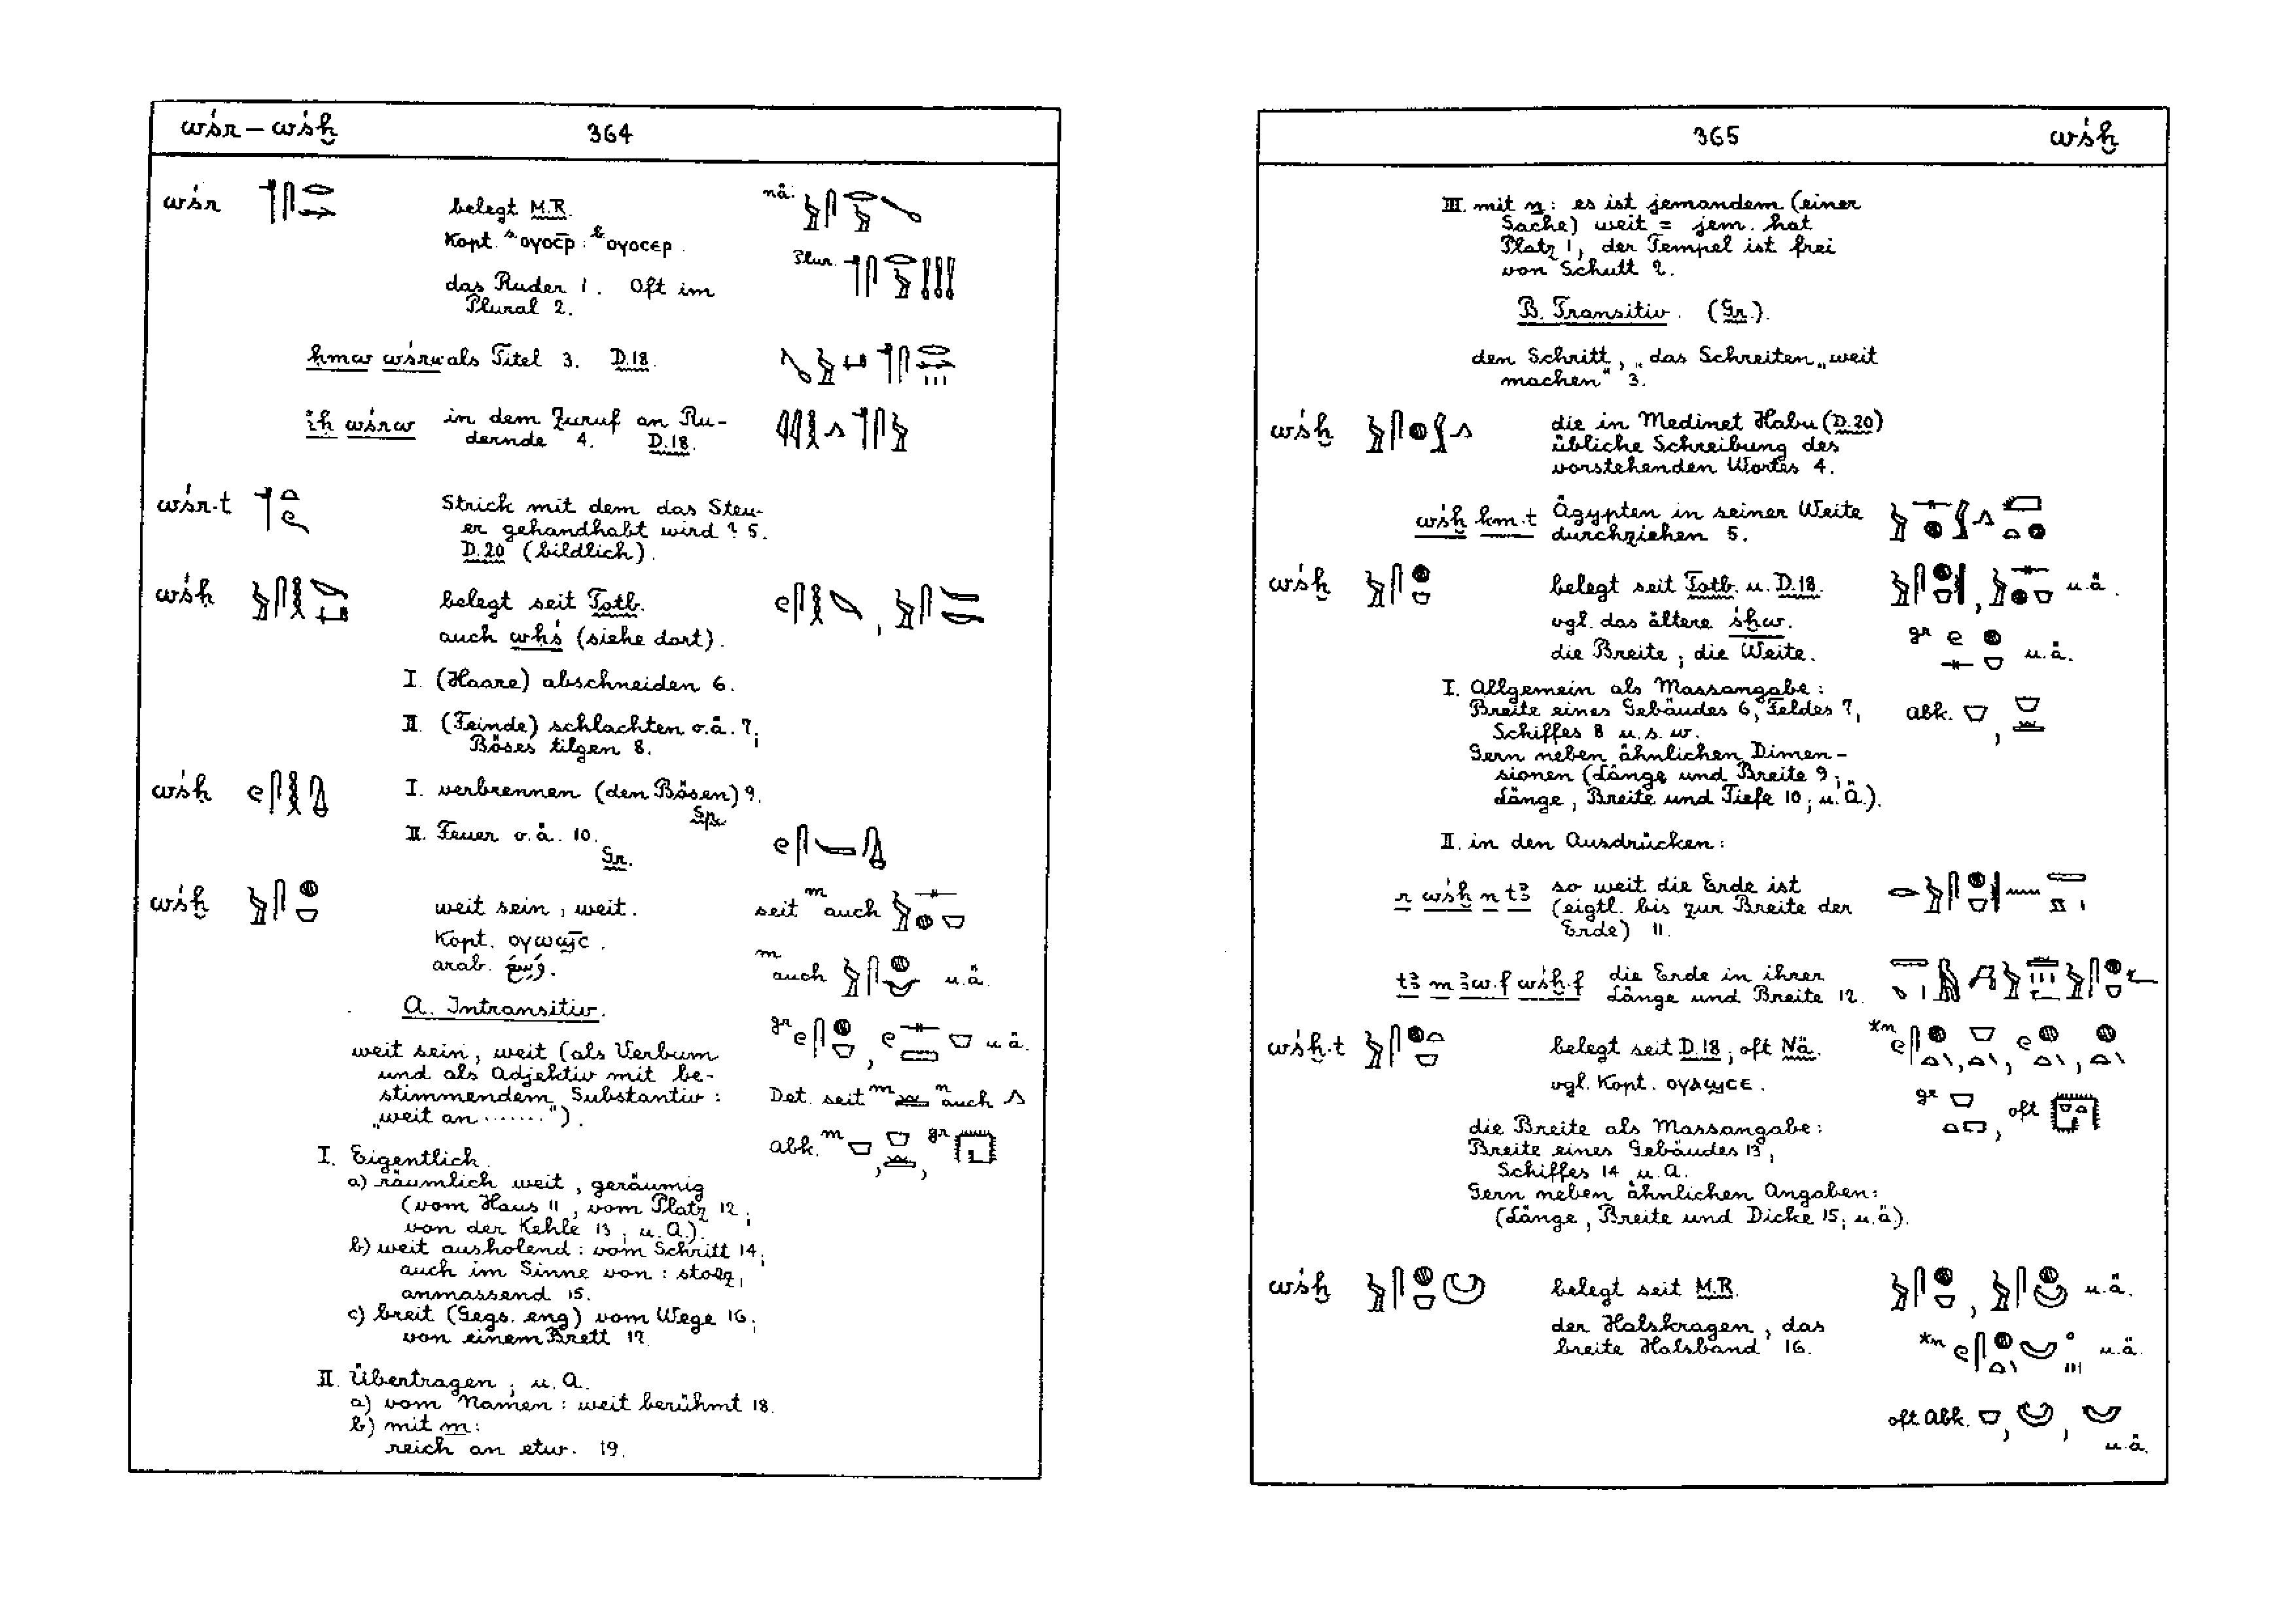 wśr – wśḫ 364
wśr belegt M.R. nä.
Kopt. ˢ ⲟⲩⲟⲥⲣ̄ : ᵇ ⲟⲩⲟⲥⲉⲣ.
Plur.
das Ruder 1. Oft im
Plural 2.
ḥmw wśrw als Titel 3. D.18.
iḥ wśrw in dem Zuruf an Ru-
dernde 4. D.18.
wśr·t Strick mit dem das Steu-
er gehandhabt wird? 5.
D.20 (bildlich).
wśḥ belegt seit Totb.
auch wḥś (siehe dort).
I. (Haare) abschneiden 6.
II. (Feinde) schlachten o.ä. 7;
Böses tilgen 8.
wśḥ I. verbrennen (den Bösen) 9.
Sp.
II. Feuer o.ä. 10.
Gr.
wśḫ weit sein, weit. seit m auch
Kopt. ⲟⲩⲱϣⲥ̄.
arab. وَسِعَ. m auch u.ä.
A. Intransitiv.
gr , u.ä.
weit sein, weit (als Verbum
und als Adjektiv mit be-
stimmendem Substantiv: Det. seit m n auch
„weit an ······").
abk. m , , gr
I. Eigentlich.
a) räumlich weit, geräumig
(vom Haus 11, vom Platz 12;
von der Kehle 13; u.A.).
b) weit ausholend: vom Schritt 14;
auch im Sinne von: stolz,
anmassend 15.
c) breit (Gegs. eng) vom Wege 16;
von einem Brett 17.
II. Übertragen; u.A.
a) vom Namen: weit berühmt 18.
b) mit m:
reich an etw. 19.
365 wśḫ
III. mit n: es ist jemandem (einer
Sache) weit = jem. hat
Platz 1, der Tempel ist frei
von Schutt 2.
B. Transitiv. (Gr.).
den Schritt, das Schreiten „weit
machen" 3.
wśḫ die in Medinet Habu (D.20)
übliche Schreibung des
vorstehenden Wortes 4.
wśḫ km·t Ägypten in seiner Weite
durchziehen 5.
wśḫ belegt seit Totb. u. D.18. , u.ä.
vgl. das ältere śḫw.
gr u.ä.
die Breite; die Weite.
I. Allgemein als Massangabe:
Breite eines Gebäudes 6, Feldes 7, abk. ,
Schiffes 8 u.s.w.
Gern neben ähnlichen Dimen-
sionen (Länge und Breite 9;
Länge, Breite und Tiefe 10; u.Ä.).
II. in den Ausdrücken:
r wśḫ n tꜣ so weit die Erde ist
(eigtl. bis zur Breite der
Erde) 11.
tꜣ m ꜣw·f wśḫ·f die Erde in ihrer
Länge und Breite 12.
wśḫ·t belegt seit D.18; oft Nä. *m , , ,
vgl. Kopt. ⲟⲩⲁϣⲥⲉ.
gr , oft
die Breite als Massangabe:
Breite eines Gebäudes 13,
Schiffes 14 u.A.
Gern neben ähnlichen Angaben:
(Länge, Breite und Dicke 15; u.ä.).
wśḫ belegt seit M.R. , u.ä.
der Halskragen, das
breite Halsband 16. *m u.ä.
oft abk. , ,
u.ä.